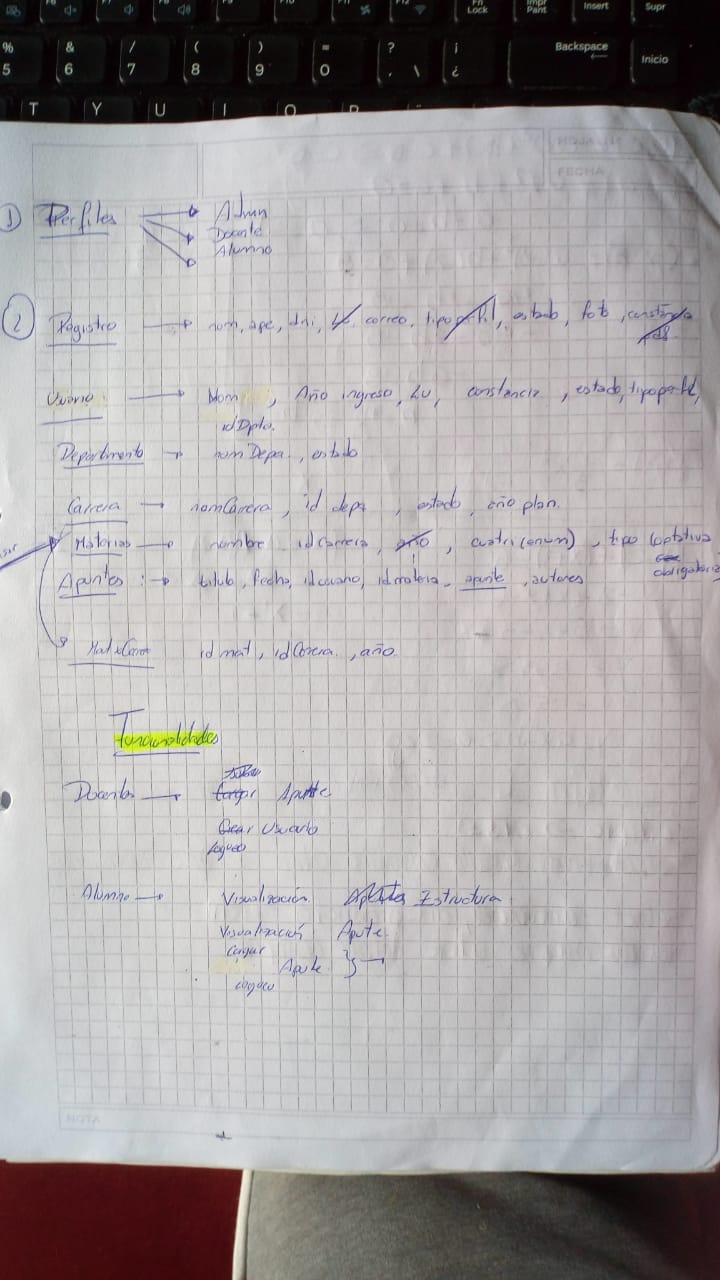 Fn Lock
Impr Pant
Insert
Supr
% 5
& 6
/ 7
( 8
) 9
= 0
? \
¡ ¿
Backspace
Inicio
T Y U I O P
HOJA Nº
FECHA
1 Perfiles Admin
Docente
Alumno
2 Registro nom, ape, dni, correo, tipo perfil, estado, foto, constancia
pdf
Usuario Nom, Año ingreso, LU, constancia, estado, tipoperfil,
idDpto.
Departamento nomDepa, estado
Carrera nomCarrera, id depa, estado, año plan.
Materias nombre idCarrera, año, cuatri(enum), tipo (optativa
obligatoria
Apuntes : titulo, fecha, idusuario, idmateria, apunte, autores
MatxCarre id mat, idCarrera, año
Funcionalidades
Docentes Apunte
Crear Usuario
Logueo
Alumno Visualización Apuntes Estructura
Visualización Apute
Cargar
Apute }
Logueo
NOTA